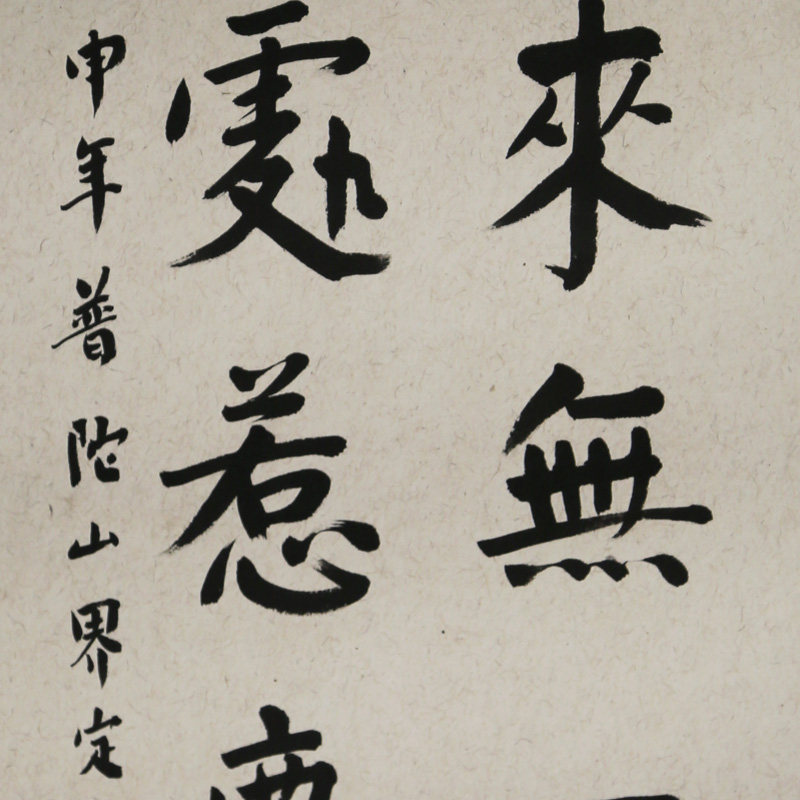 來無
處惹
申年普陀山界定